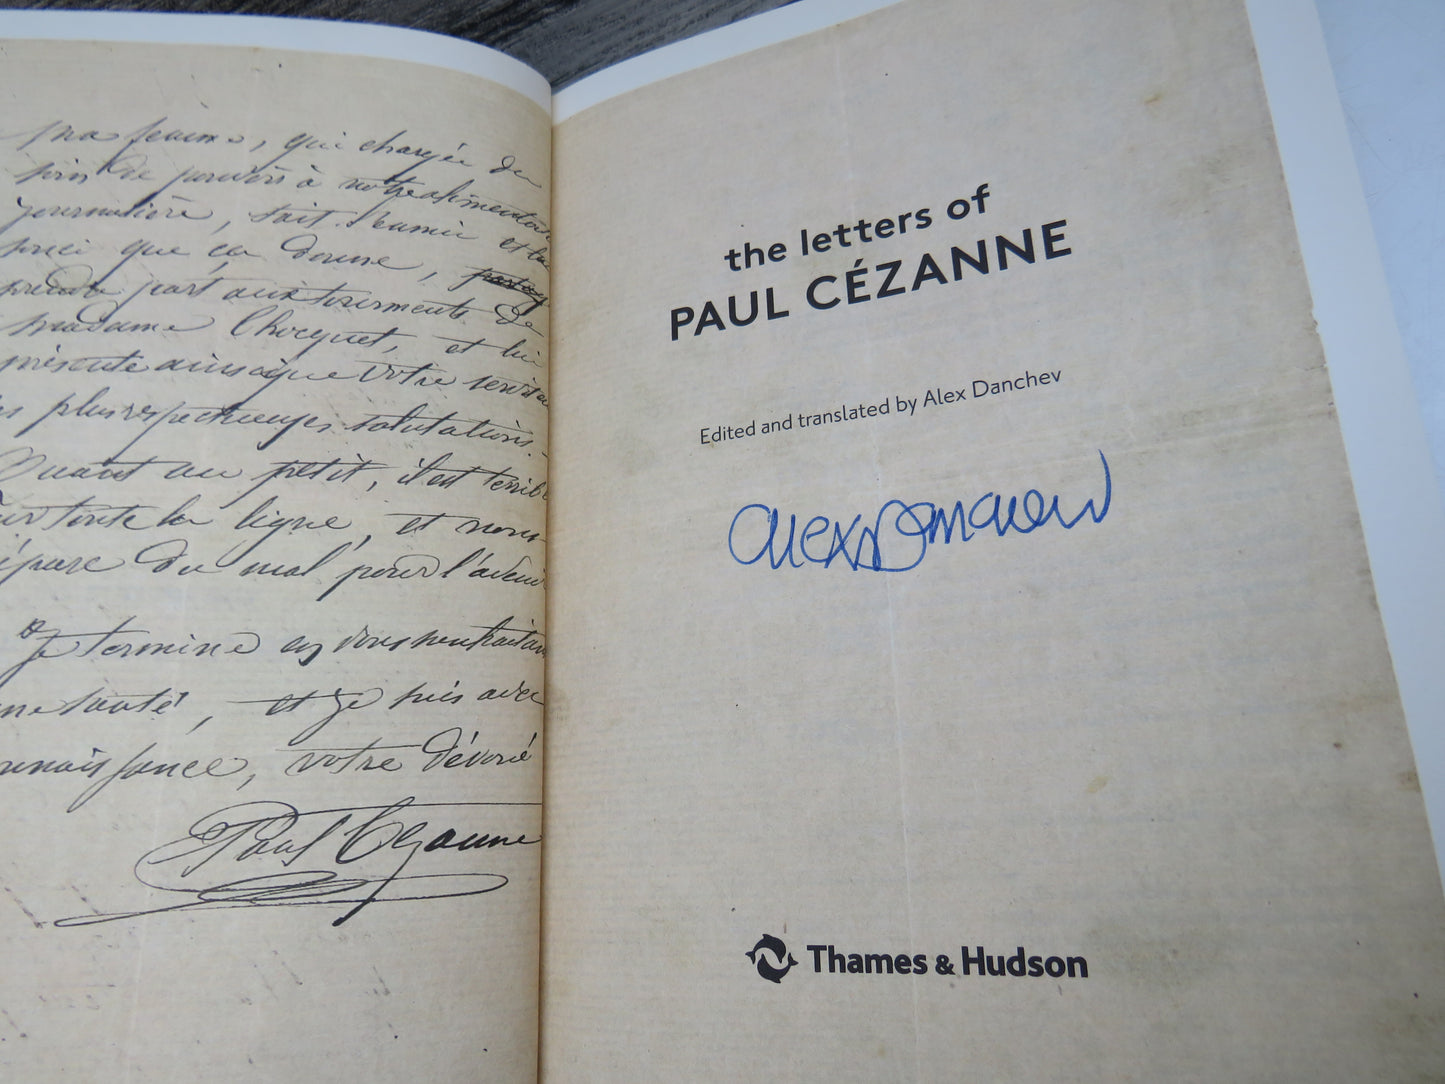 ma femme, qui chargée du
soin de pourvoir à notre alimentation
journalière, sait l'ennui et le
souci que ça donne,
prendre part aux tourments de
madame Chocquet, et lui
présente ainsi que votre serviteur
les plus respectueuses salutations.
Quant au petit, il est terrible
sur toute la ligne, et nous
prépare du mal pour l'avenir
Je termine en vous souhaitant
bonne santé, et je suis avec
reconnaissance, votre dévoué
Paul Cezanne
the letters of
PAUL CÉZANNE
Edited and translated by Alex Danchev
Alex Danchev
Thames & Hudson